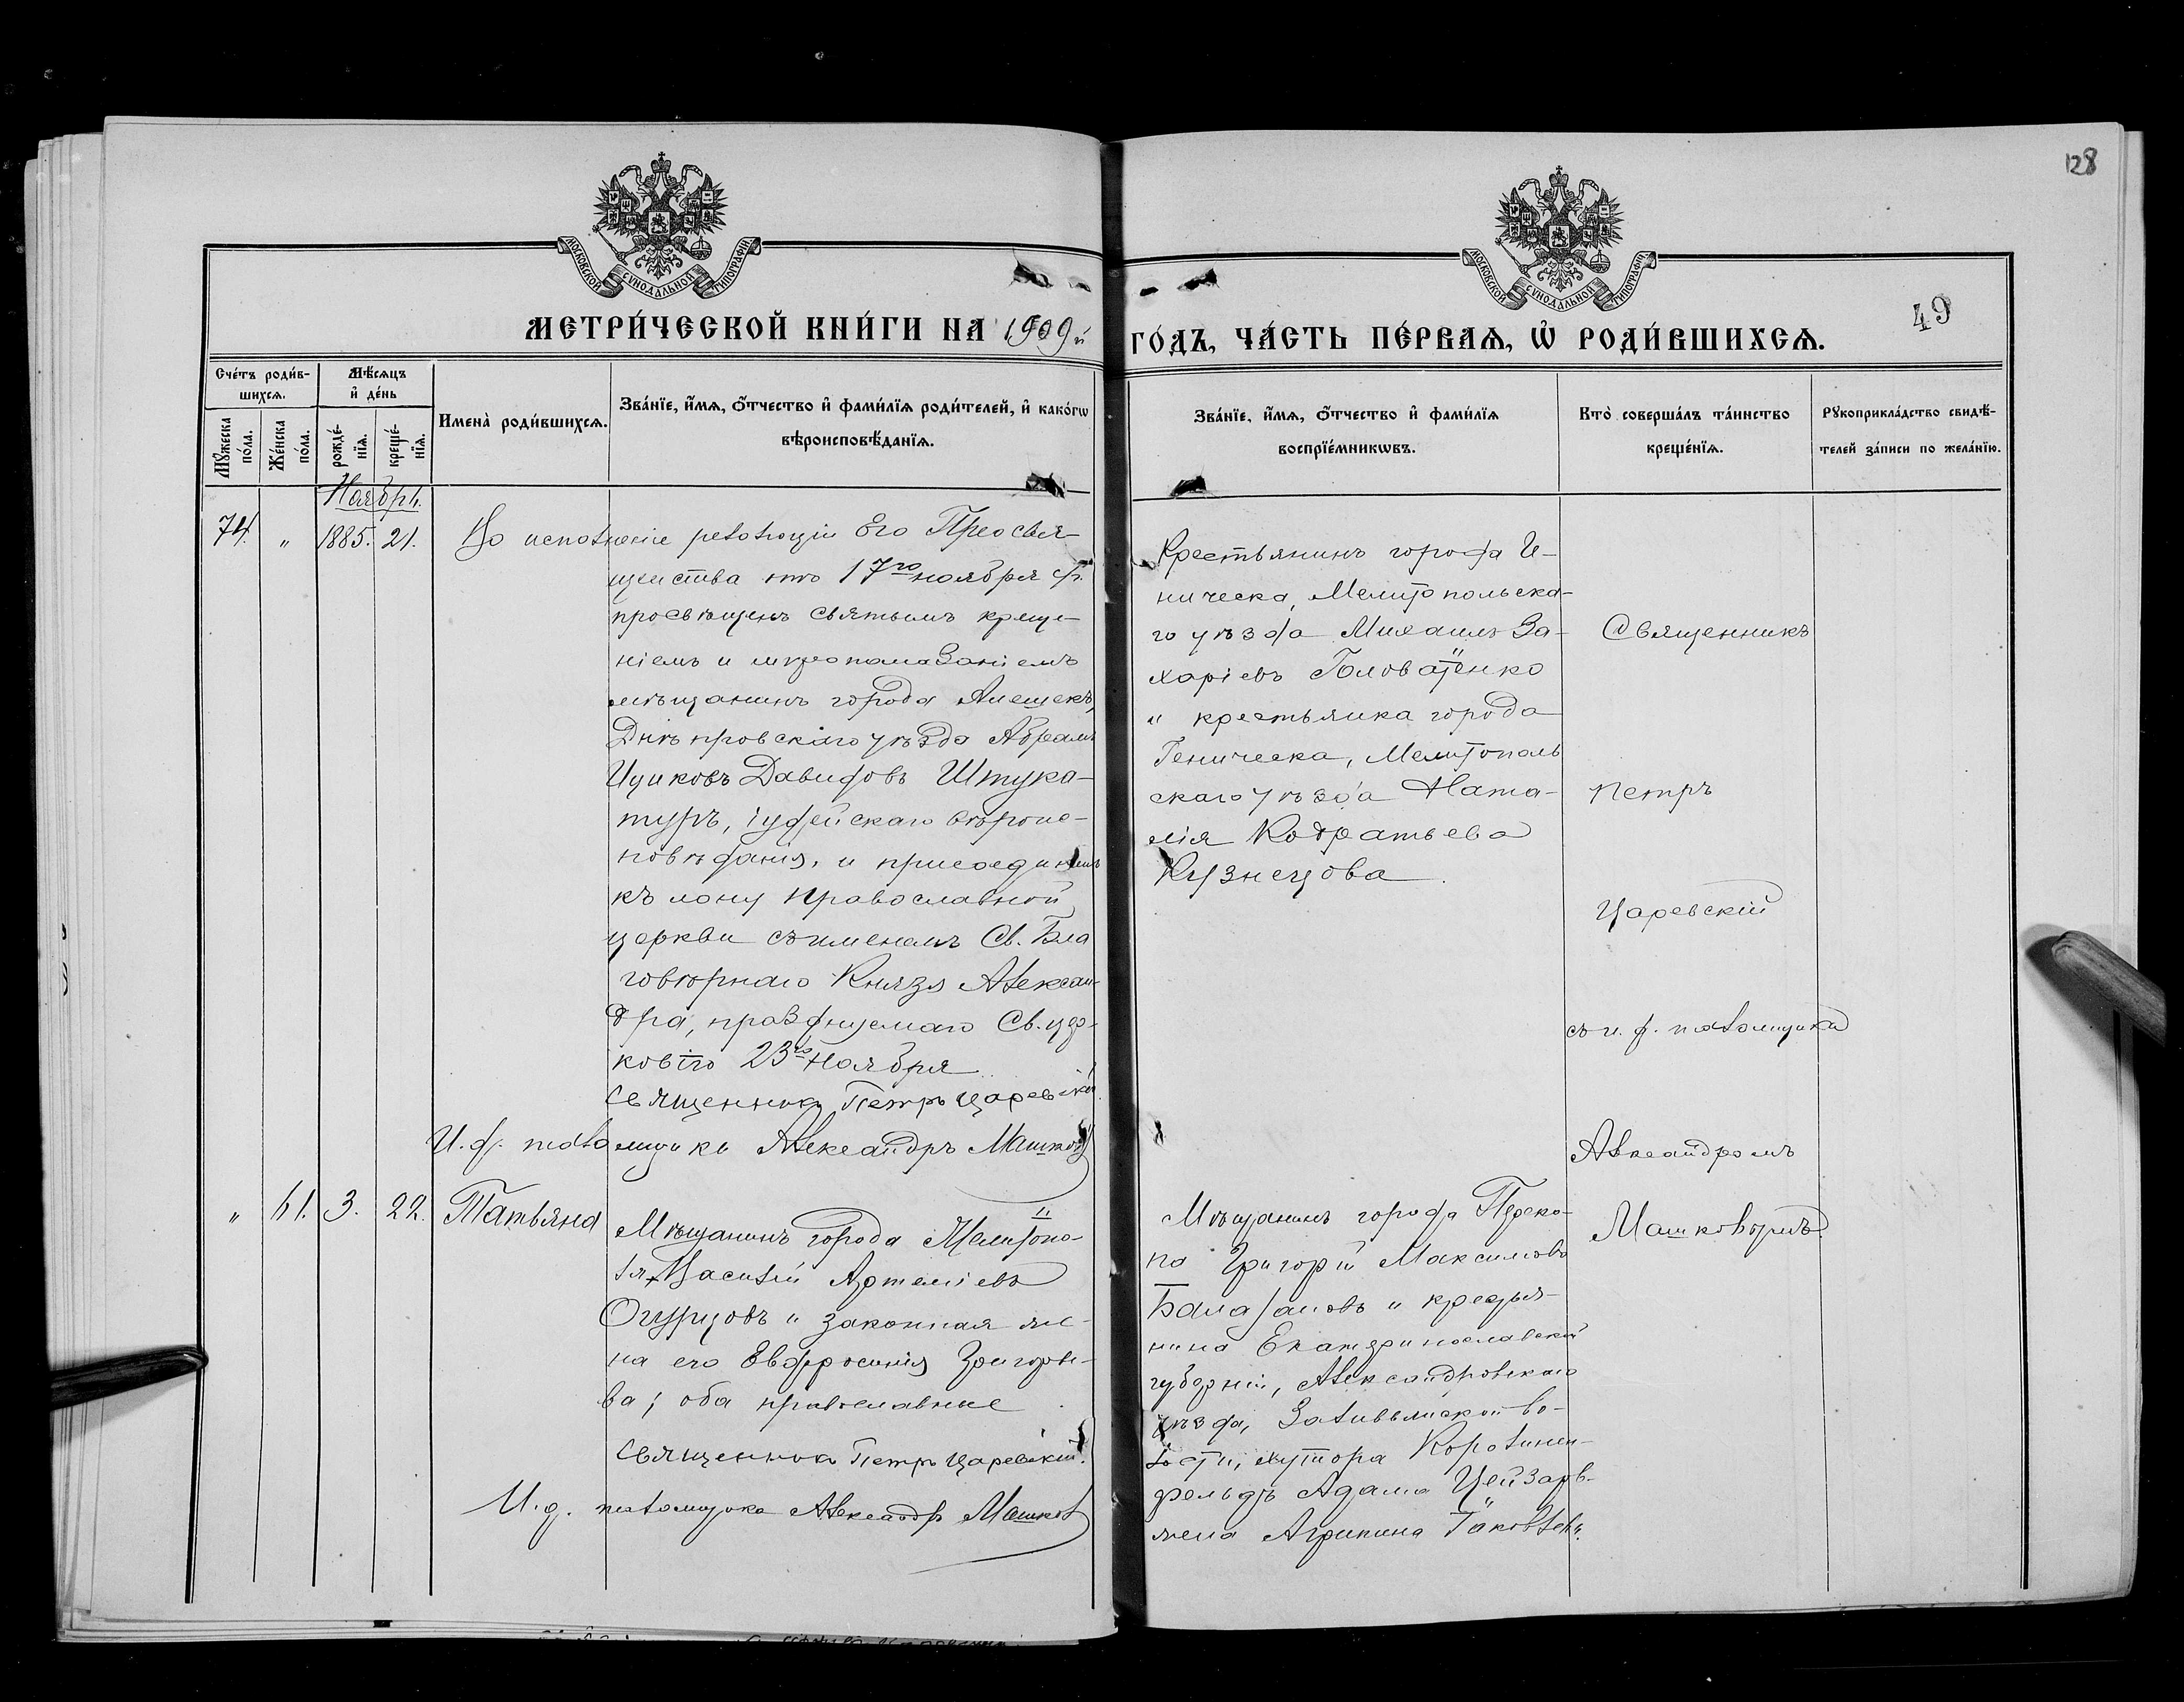 128
МОСКОВСКОЙ СѴНОДАЛЬНОЙ ТИПОГРАФІИ
МОСКОВСКОЙ СѴНОДАЛЬНОЙ ТИПОГРАФІИ
49
МЕТРИ́ЧЕСКОЙ КНИ́ГИ НА 1909й ГО́ДЪ, ЧА́СТЬ ПЕ́РВАѦ, Ѡ҆ РОДИ́ВШИХСѦ.
Сче́тъ роди́в-
шихсѧ.
Мѣ́сѧцъ
и҆ де́нь
Мꙋ́жеска
по́ла.
Же́нска
по́ла.
рожде́-
нїѧ.
креще́-
нїѧ.
Имена̀ роди́вшихсѧ.
Зва́нїе, и҆́мѧ, ѻ҆́тчество и҆ фами́лїѧ роди́телей, и҆ како́гѡ
вѣроисповѣ́данїѧ.
Зва́нїе, и҆́мѧ, ѻ҆́тчество и҆ фами́лїѧ
воспрїе́мникѡвъ.
Кто̀ соверша́лъ та́инство
креще́нїѧ.
Рꙋкоприкла́дство свидѣ́-
телей за́писи по жела́нїю.
Ноябрь.
74. " 1885. 21. Во исполненіе резолюціи Его Преосвя-
щенства отъ 17го ноября с.г.
просвѣщенъ святымъ креще-
ніемъ и миропомазаніемъ
мѣщанинъ города Алешекъ,
Днѣпровскаго уѣзда Абрамъ
Ицковъ Давидовъ Штука-
туръ, іудейскаго вѣроис-
повѣданія, и присоединенъ
къ лону православной
церкви съ именемъ Св. Бла
говѣрнаго Князя Алексан-
дра, празднуемаго Св. цер-
ковію 23го Ноября
Священникъ Петръ Царевскій
И. д. псаломщика Александръ Машков
Крестьянинъ города Ге-
ническа, Мелитопольска-
го уѣзда Михаилъ За-
харіевъ Головатенко
и крестьянка города
Геническа, Мелитополь
скаго уѣзда Ната-
лія Кодратьева
Кузнецова
Священникъ
Петръ
Царевскій
съ и. д. псаломщика
Александромъ
Машковымъ
" 61. 3. 22. Татьяна
Мѣщанинъ города Мелитопо-
ля Василій Артеміевъ
Огурцовъ и законная же-
на его Евфросинія Григорье-
ва; оба православные
Священникъ Петръ Царевскій.
И. д. псаломщика Александръ Машков
Мѣщанинъ города Переко-
па Григорій Максимовъ
и крестья-
нина Екатеринославской
губерніи, Александровскаго
уѣзда, во-
лости, хутора
фельдъ Адама
жена Агрипина Іаковлева.